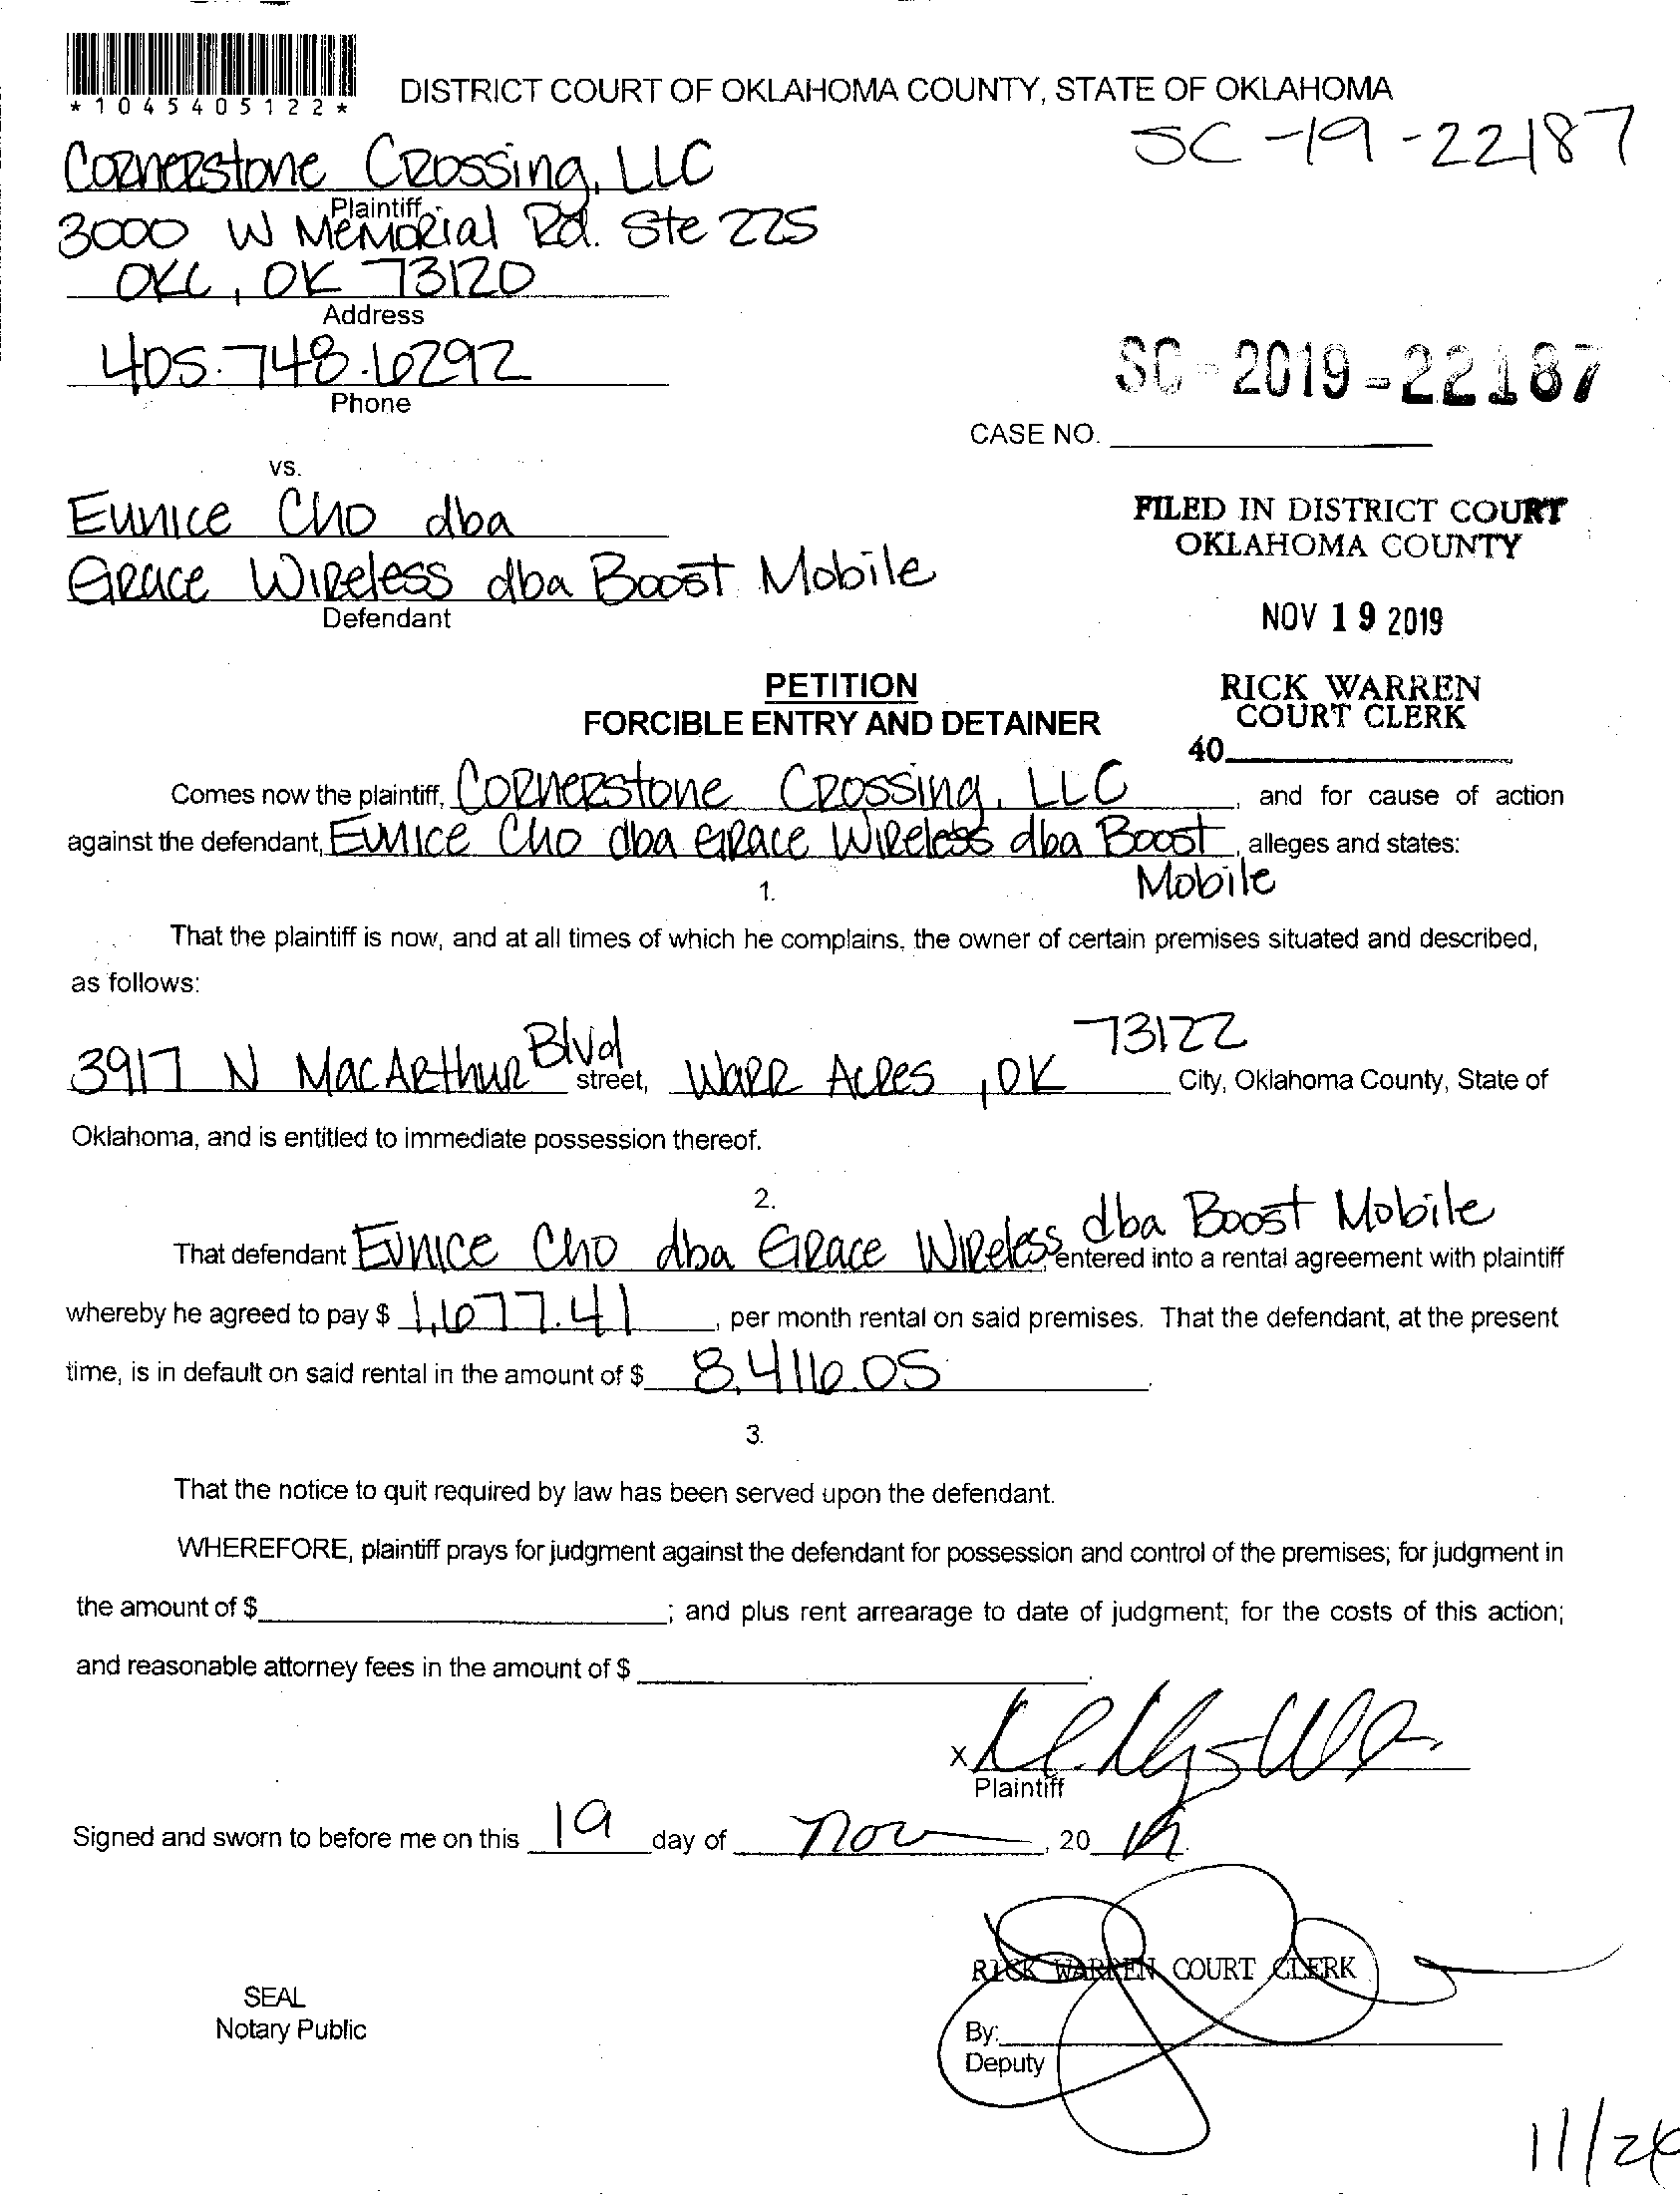 *1045405122*
DISTRICT COURT OF OKLAHOMA COUNTY, STATE OF OKLAHOMA
SC-19-22187
Cornerstone Crossing, LLC
Plaintiff
3000 W Memorial Rd. Ste 225
OKC, OK 73120
Address
405.748.6292
Phone
SC-2019-22187
CASE NO.
vs.
Eunice Cho dba
Grace Wireless dba Boost Mobile
Defendant
FILED IN DISTRICT COURT
OKLAHOMA COUNTY
NOV 19 2019
RICK WARREN
COURT CLERK
40
PETITION
FORCIBLE ENTRY AND DETAINER
Comes now the plaintiff, Cornerstone Crossing, LLC, and for cause of action
against the defendant, Eunice Cho dba Grace Wireless dba Boost, alleges and states:
Mobile
1.
That the plaintiff is now, and at all times of which he complains, the owner of certain premises situated and described,
as follows:
3917 N MacArthur Blvd street, Warr Acres, OK 73122 City, Oklahoma County, State of
Oklahoma, and is entitled to immediate possession thereof.
2.
That defendant Eunice Cho dba Grace Wireless dba Boost Mobile, entered into a rental agreement with plaintiff
whereby he agreed to pay $ 1,677.41, per month rental on said premises. That the defendant, at the present
time, is in default on said rental in the amount of $ 8,416.05.
3.
That the notice to quit required by law has been served upon the defendant.
WHEREFORE, plaintiff prays for judgment against the defendant for possession and control of the premises; for judgment in
the amount of $ ; and plus rent arrearage to date of judgment; for the costs of this action;
and reasonable attorney fees in the amount of $ .
X
Plaintiff
Signed and sworn to before me on this 19 day of Nov, 20 19.
RICK WARREN COURT CLERK
SEAL
Notary Public
By:
Deputy